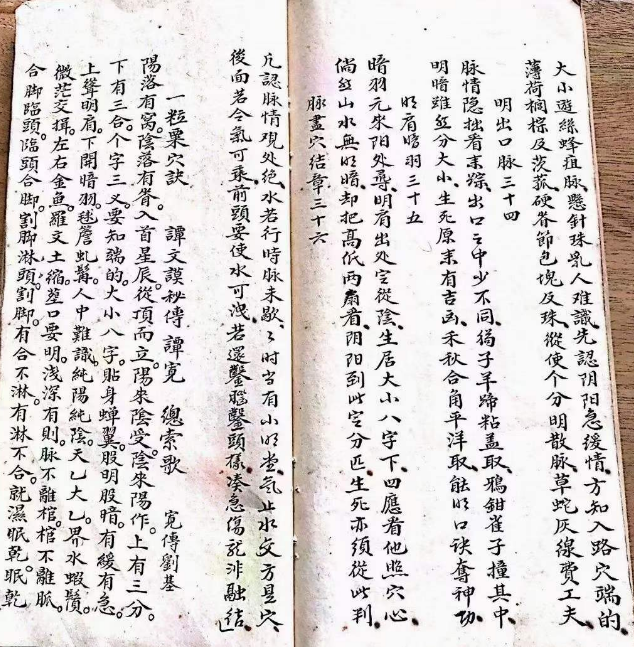 大小遊絲蜂疽脉懸針珠乳人难識先認阴阳急緩情方知入路穴端的
薄荷櫚棕及茨菰硬脊節包塊及珠縱使个分明散脉草蛇灰線費工夫
明出口脉三十四
脉情隐拙看末踪出口之中少不同犵子羊蹄粘盖取鴉鉗雀子撞其中
明暗雖然分大小生死原来有吉凶禾秋合角平洋取能明口诀奪神功
明肩暗羽三十五
暗羽元来阳处尋明肩出处定從陰生居大小八字下四應看他照穴心
倘然山水無明暗却把高低两扇看阴阳到此定分匹生死亦须從此判
脉盡穴结章三十六
凡認脉情观处绝水若行時脉未歇々时当有小明堂氣止水交方是穴
後面若令氣可乘前頭要使水可洩若還鑿腦鑿頭樣凑急傷龍非融结
一粒粟穴訣 譚文謨秘傳譚寛 總索歌 寛傳劉基
陽落有窩。陰落有脊。入首星辰。從頂而立。陽来陰受。陰来陽作。上有三分。
下有三合。个字三叉。要知端的。大小八字。貼身蟬翼。股明股暗。有緩有急。
上聳明肩。下開暗羽。毬簷虬髯。人中難識。純陽純陰。天乙太乙。界水蝦鬚。
微茫交揖。左右金魚。羅文土縮。葬口要明。淺深有則。脉不離棺。棺不離脈。
合脚臨頭。臨頭合脚。割脚淋頭。割脚。有合不淋。有淋不合。就濕眠乾。眠乾